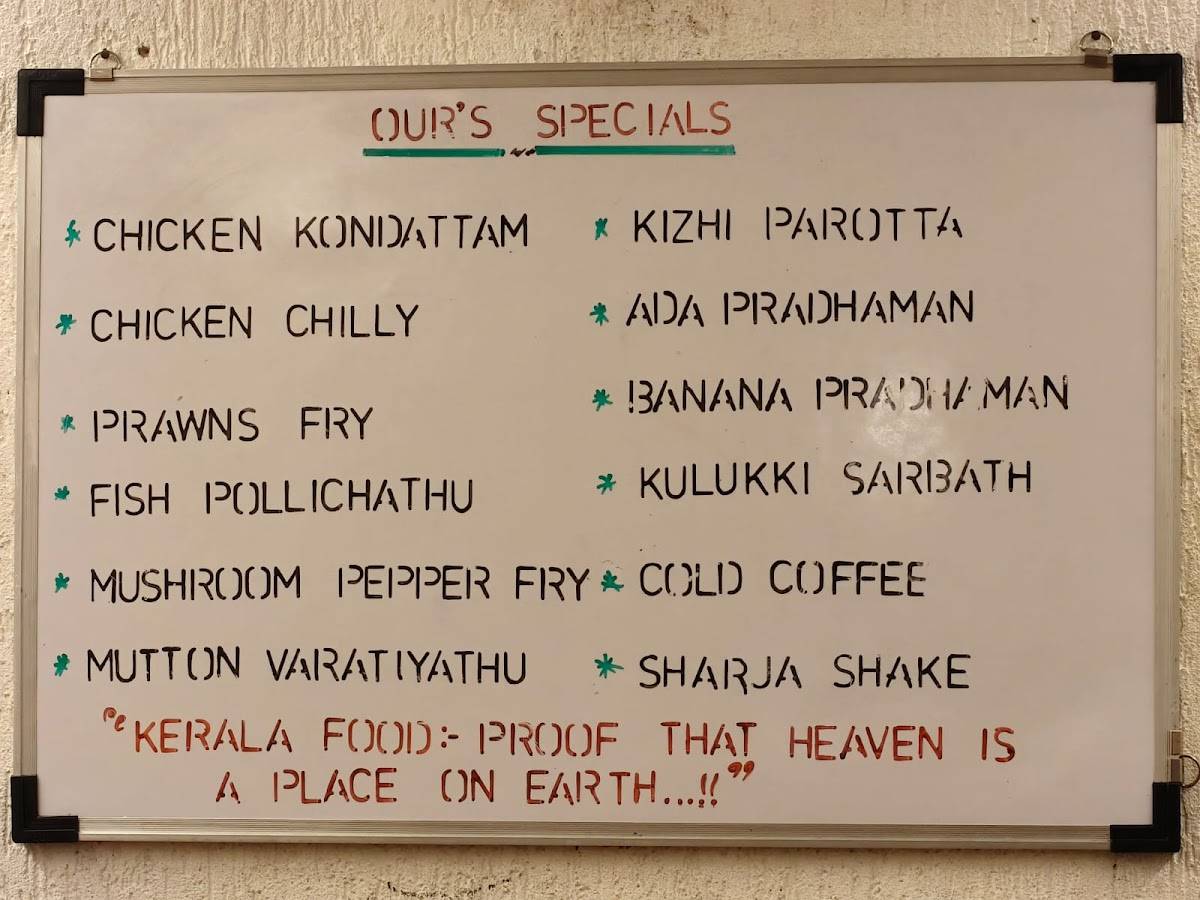 OUR'S SPECIALS
* CHICKEN KONDATTAM
* CHICKEN CHILLY
* PRAWNS FRY
* FISH POLLICHATHU
* MUSHROOM PEPPER FRY
* MUTTON VARATIYATHU
* KIZHI PAROTTA
* ADA PRADHAMAN
* BANANA PRADHAMAN
* KULUKKI SARBATH
* COLD COFFEE
* SHARJA SHAKE
"KERALA FOOD:- PROOF THAT HEAVEN IS
A PLACE ON EARTH...!!"